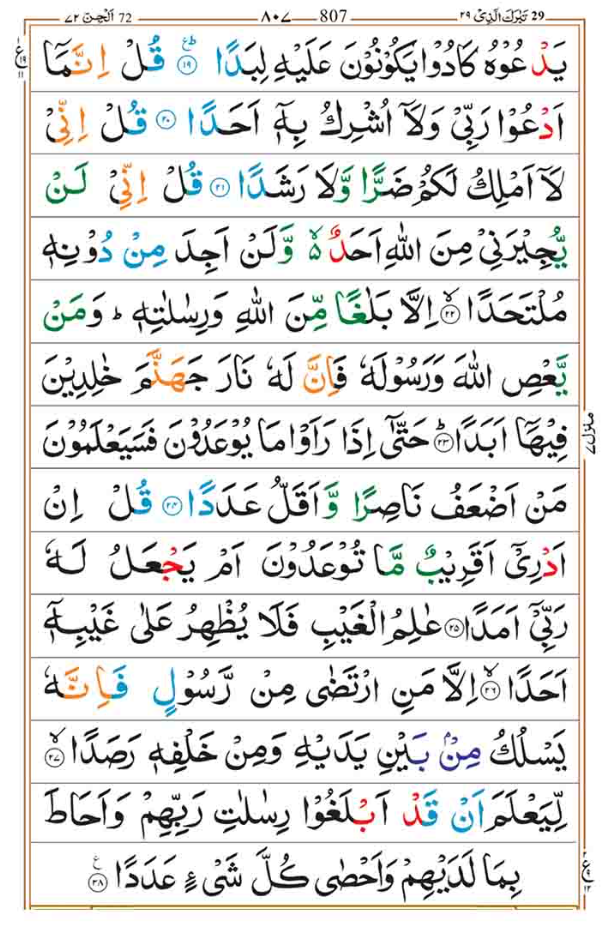 29 تَبٰرَكَ الَّذِىْ ٢٩ 807 ٨٠٧ 72 اَلْجِنّ ٧٢
يَدْعُوْهُ كَادُوْا يَكُوْنُوْنَ عَلَيْهِ لِبَدًا ۱۹ قُلْ اِنَّمَاۤ
اَدْعُوْا رَبِّىْ وَلَاۤ اُشْرِكُ بِهٖۤ اَحَدًا ۲۰ قُلْ اِنِّىْ
لَاۤ اَمْلِكُ لَكُمْ ضَرًّا وَّلَا رَشَدًا ۲۱ قُلْ اِنِّىْ لَنْ
يُّجِيْرَنِىْ مِنَ اللّٰهِ اَحَدٌ ۵ۙ وَّلَنْ اَجِدَ مِنْ دُوْنِهٖ
مُلْتَحَدًا ۲۲ۙ اِلَّا بَلٰغًا مِّنَ اللّٰهِ وَرِسٰلٰتِهٖ ؕ وَمَنْ
يَّعْصِ اللّٰهَ وَرَسُوْلَهٗ فَاِنَّ لَهٗ نَارَ جَهَنَّمَ خٰلِدِيْنَ
فِيْهَاۤ اَبَدًا ۲۳ؕ حَتّٰۤى اِذَا رَاَوْا مَا يُوْعَدُوْنَ فَسَيَعْلَمُوْنَ
مَنْ اَضْعَفُ نَاصِرًا وَّاَقَلُّ عَدَدًا ۲۴ قُلْ اِنْ
اَدْرِىْۤ اَقَرِيْبٌ مَّا تُوْعَدُوْنَ اَمْ يَجْعَلُ لَهٗ
رَبِّىْۤ اَمَدًا ۲۵ عٰلِمُ الْغَيْبِ فَلَا يُظْهِرُ عَلٰى غَيْبِهٖۤ
اَحَدًا ۲۶ۙ اِلَّا مَنِ ارْتَضٰى مِنْ رَّسُوْلٍ فَاِنَّهٗ
يَسْلُكُ مِنْۢ بَيْنِ يَدَيْهِ وَمِنْ خَلْفِهٖ رَصَدًا ۲۷ۙ
لِّيَعْلَمَ اَنْ قَدْ اَبْلَغُوْا رِسٰلٰتِ رَبِّهِمْ وَاَحَاطَ
بِمَا لَدَيْهِمْ وَاَحْصٰى كُلَّ شَىْءٍ عَدَدًا ۲۸
منزل ۷